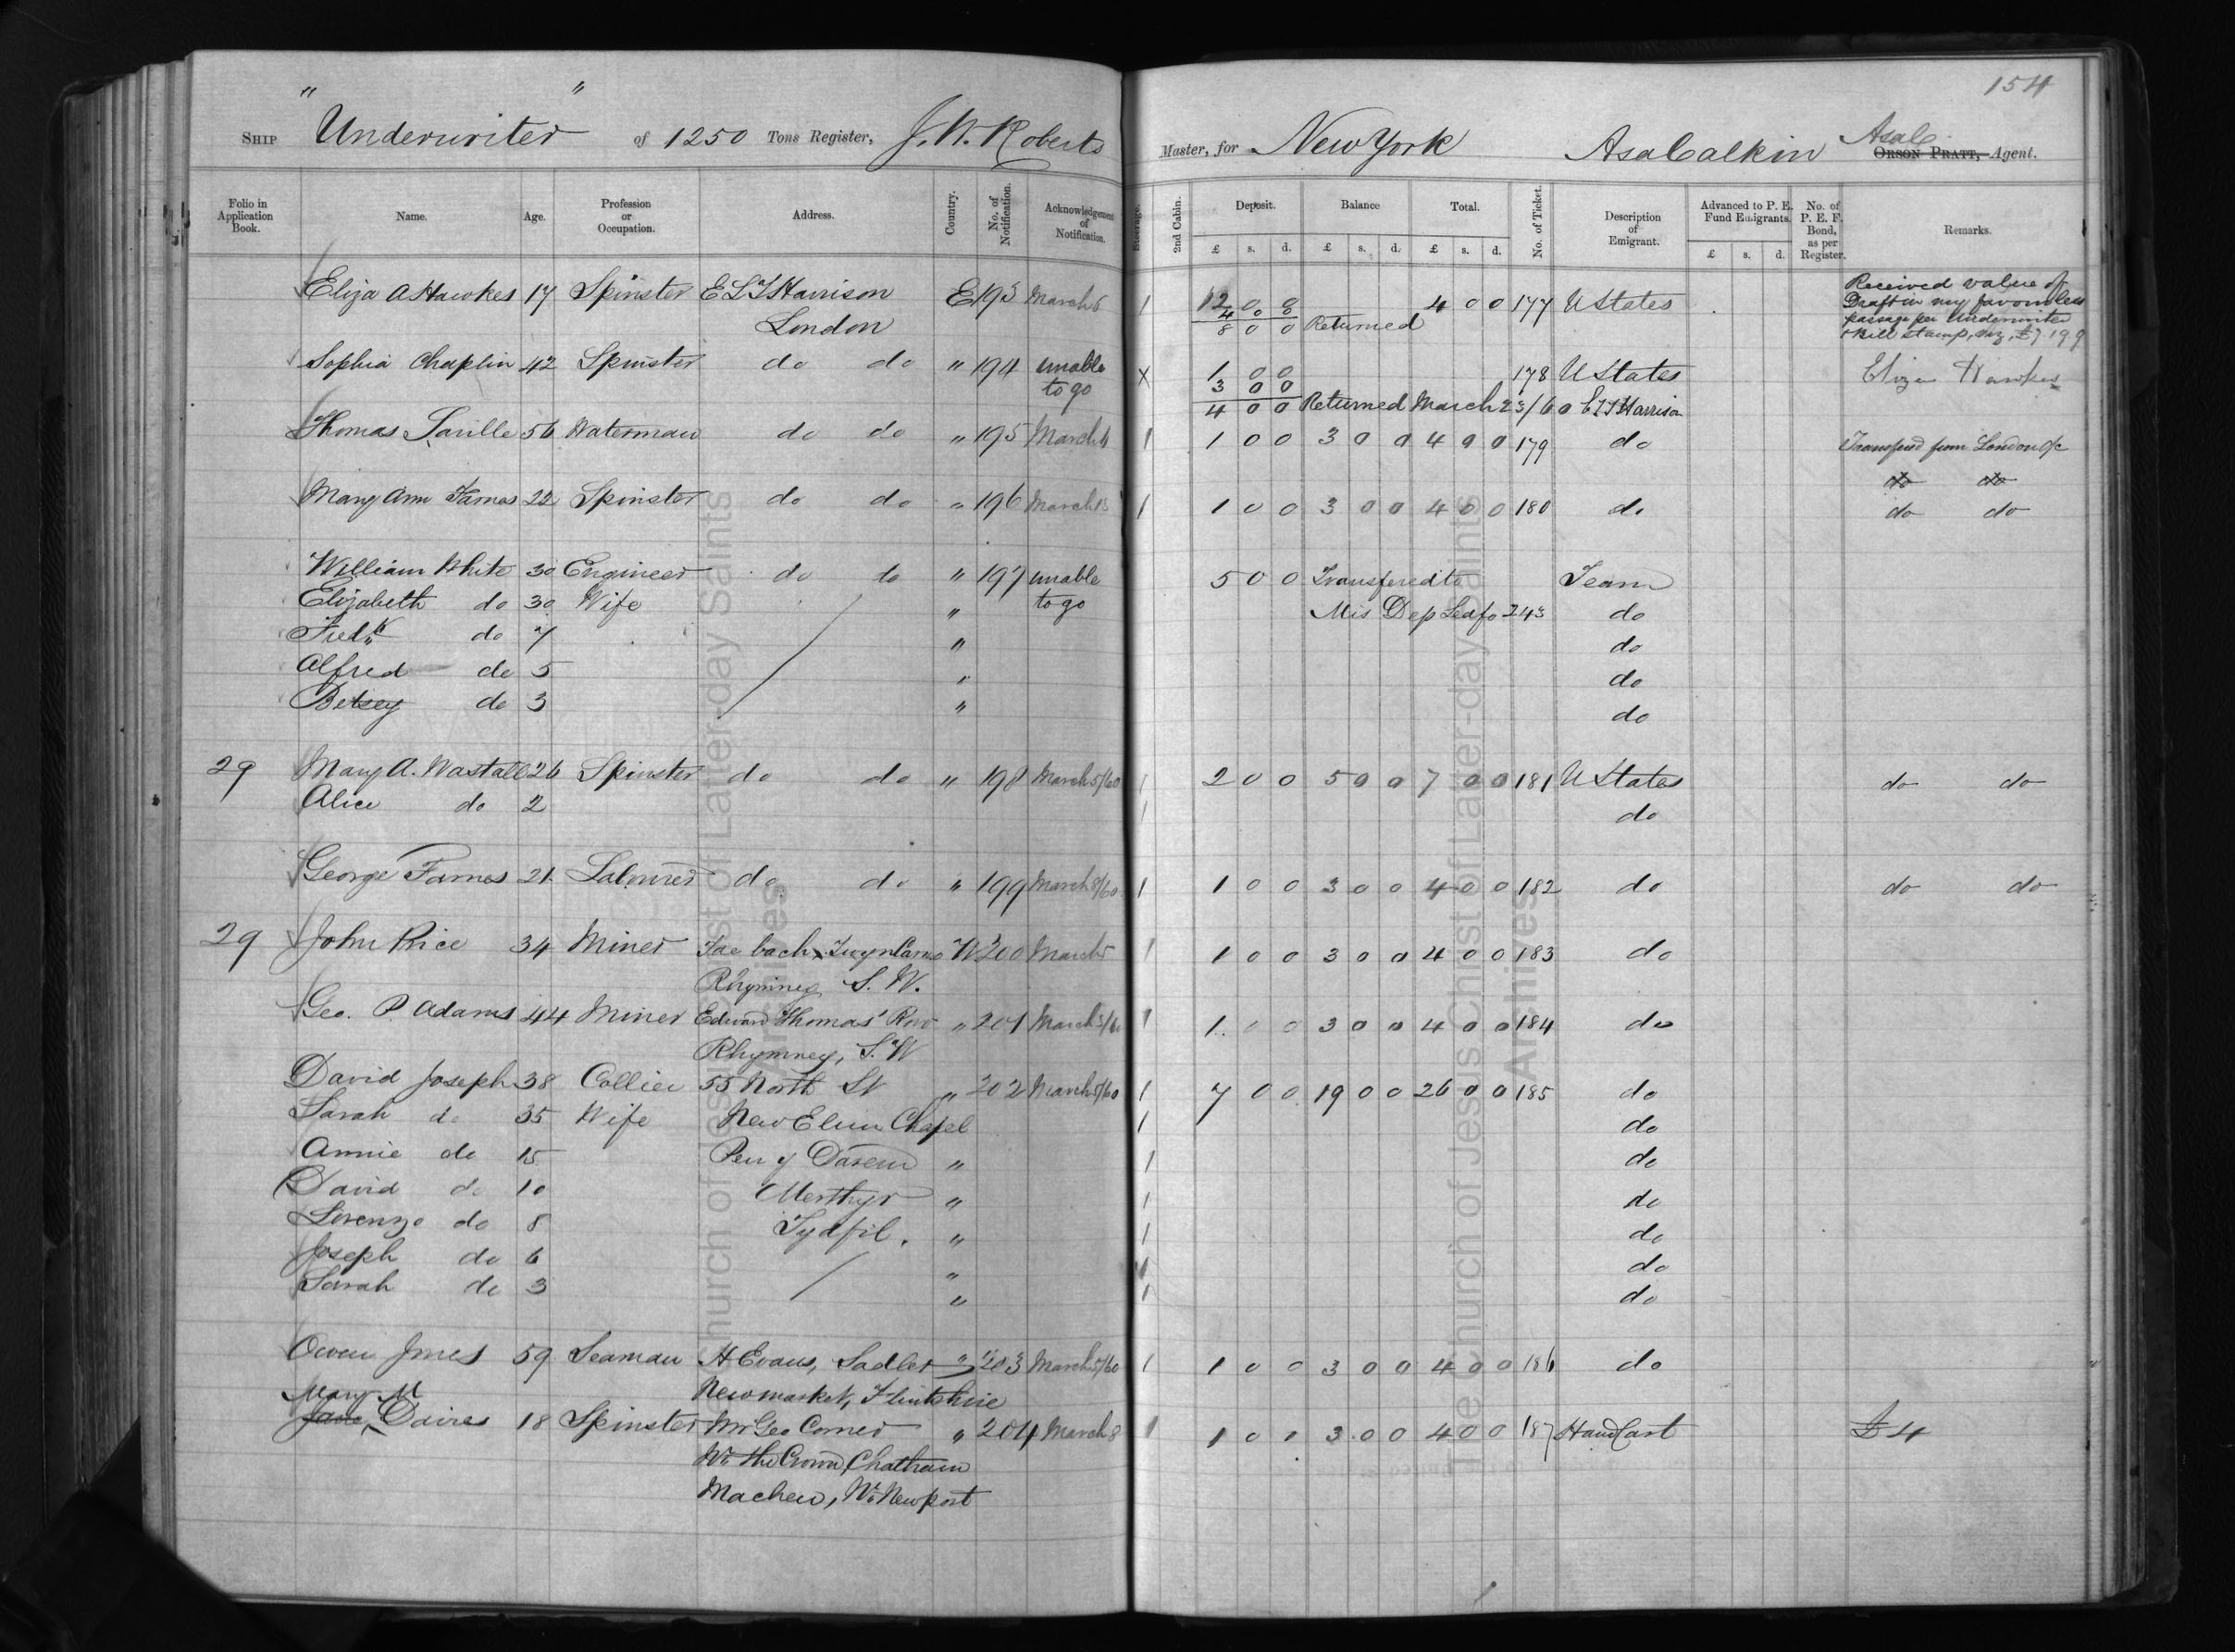 154
Ship "Underwriter" of 1250 Tons Register, J. W. Roberts Master, for New York Asa Calkin Asa C. ORSON PRATT, Agent.
Folio in Application Book. Name. Age. Profession or Occupation. Address. Country. No. of Notification. Acknowledgement of Notification. Steerage. 2nd Cabin. Deposit. Balance Total. No. of Ticket. Description of Emigrant. Advanced to P. E. Fund Emigrants. No. of P. E. F. Bond, as per Register. Remarks.
£ s. d. £ s. d. £ s. d. £ s. d.
Eliza A Hawkes 17 Spinster E L T Harrison E 193 March 6 1 12 0 0 4 0 0 177 U States Received value of
London 4 0 0 Draft in my favour less
8 0 0 Returned passage per Underwriter
& Bill stamp, viz, £7 19 9
Sophia Chaplin 42 Spinster do do " 194 unable to go X 1 0 0 178 U States Eliza Hawkes
3 0 0
4 0 0 Returned March 23/60 E L T Harrison
Thomas Saville 56 Waterman do do " 195 March 6 1 1 0 0 3 0 0 4 0 0 179 do Transfered from London a/c
do do
Mary Ann Farnes 22 Spinster do do " 196 March 13 1 1 0 0 3 0 0 4 0 0 180 do do do
William White 30 Engineer do do " 197 unable 5 0 0 Transfered to Team
Elizabeth do 30 Wife " to go Mis Dep Led fo 243 do
Fredk do 7 " do
Alfred do 5 " do
Betsey do 3 " do
29 Mary A. Wastall 26 Spinster do do " 198 March 5/60 1 2 0 0 5 0 0 7 0 0 181 U States do do
Alice do 2 1 do
George Farnes 21 Labourer do do " 199 March 8/60 1 1 0 0 3 0 0 4 0 0 182 do do do
29 John Rice 34 Miner bach W 200 March 5 1 1 0 0 3 0 0 4 0 0 183 do
Rhymney S. W.
Geo. P Adams 44 Miner Edward Thomas' Row " 201 March 5/60 1 1 0 0 3 0 0 4 0 0 184 do
Rhymney, S. W
David Joseph 38 Collier 55 North St " 202 March 5/60 1 7 0 0 19 0 0 26 0 0 185 do
Sarah do 35 Wife New Elim Chapel 1 do
Annie do 15 Pen y Daren " 1 do
David do 10 Merthyr " 1 do
Lorenzo do 8 Tydfil. " 1 do
Joseph do 6 " 1 do
Sarah do 3 " 1 do
Owen Jones 59 Seaman H Evans, Sadler " 203 March 5/60 1 1 0 0 3 0 0 4 0 0 186 do
Newmarket, Flintshire
Mary M
Jane Davies 18 Spinster Mr Geo Comer " 204 March 8 1 1 0 0 3 0 0 4 0 0 187 Hand Cart £4
Nr the Crown, Chatham
Machen, Nr Newport
Church of Jesus Christ of Latter-day Saints Archives
The Church of Jesus Christ of Latter-day Saints Archives